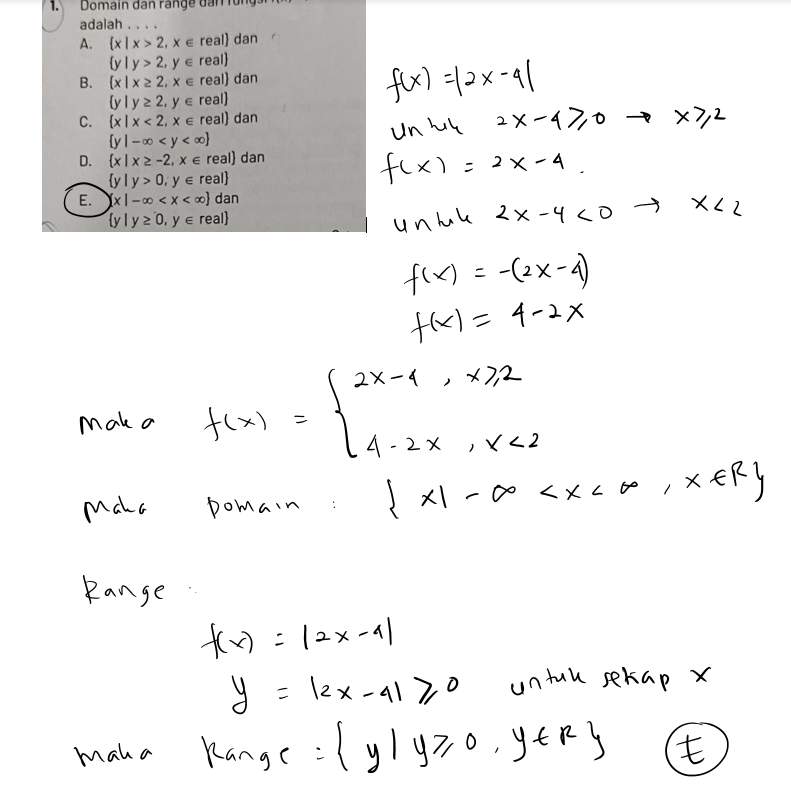 1. Domain dan range dari fungsi
adalah . . . .
A. {x | x > 2, x ∈ real} dan
{y | y > 2, y ∈ real}
B. {x | x ≥ 2, x ∈ real} dan
{y | y ≥ 2, y ∈ real}
C. {x | x < 2, x ∈ real} dan
{y | –∞ < y < ∞}
D. {x | x ≥ -2, x ∈ real} dan
{y | y > 0, y ∈ real}
E. {x | –∞ < x < ∞} dan
{y | y ≥ 0, y ∈ real}
f(x) = |2x-4|
untuk 2x-4 ≥ 0 → x ≥ 2
f(x) = 2x-4.
untuk 2x-4 < 0 → x < 2
f(x) = -(2x-4)
f(x) = 4-2x
maka f(x) = { 2x-4 , x ≥ 2
4-2x , x < 2
maka Domain : { x | -∞ < x < ∞ , x ∈ R }
Range :
f(x) = |2x-4|
y = |2x-4| ≥ 0 untuk sekap x
maka Range : { y | y ≥ 0 , y ∈ R } E